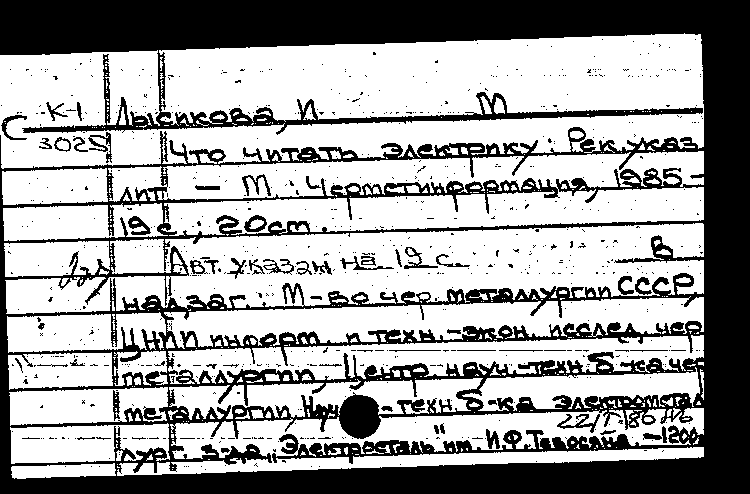 К-1
С 3025
Лысикова, И М
Что читать электрику: Рек. указ
лит — М.: Черметинформация, 1985 –
19 с.; 20 cm.
Авт. указан на 19 с. В
надзаг.: М-во чер. металлургии СССР,
ЦНИИ информ. и техн.-экон. исслед. чер
металлургии, Центр. науч.-техн. б-ка чер
металлургии, Науч -техн. б-ка электрометал
лург. з-да „Электросталь" им. И.Ф. Тевосяна. –1200